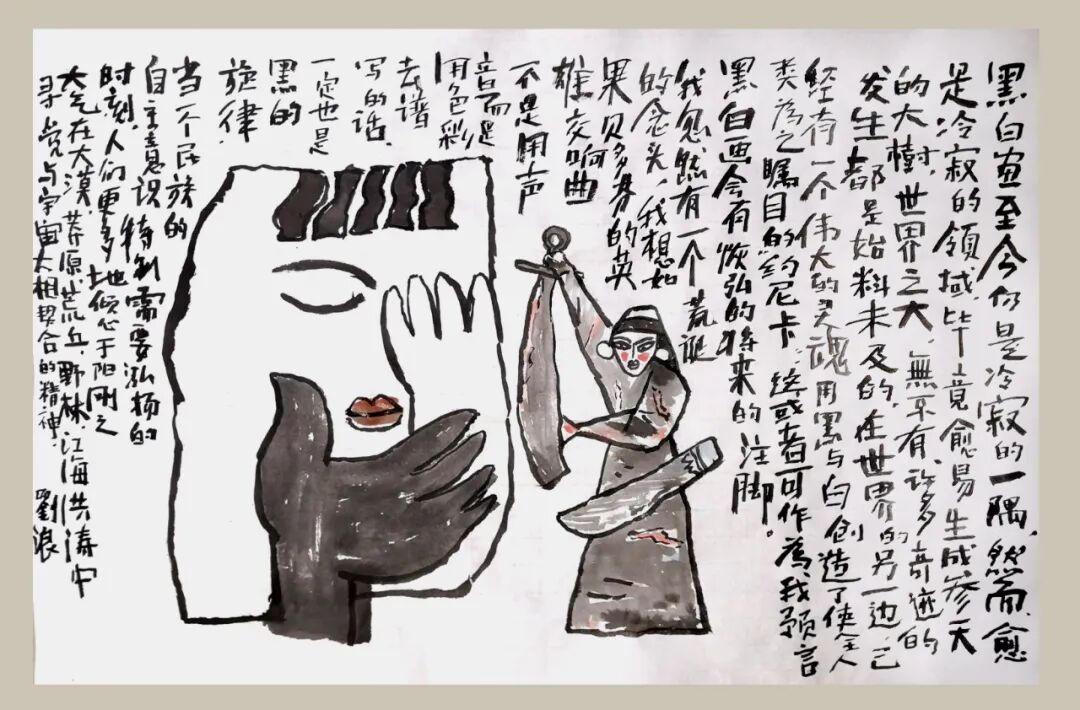 黑白画至今仍是冷寂的一隅，然而，愈
是冷寂的领域，毕竟愈易生成参天
的大樹，世界之大，無不有许多奇迹的
发生都是始料未及的，在世界的另一边，已
经有一个伟大的灵魂用黑与白创造了使全人
类為之瞩目的约尼卡。这或者可作為我预言
黑白画会有恢弘的将来的注脚。
我忽然有一个荒诞
的念头，我想如
果贝多芬的英
雄交响曲
不是用声
音而是
用色彩
去谱
写的话，
一定也是
黑的
旋律。
当一个民族的
自主意识特别需要弘扬的
时刻，人们更多地倾心于阳刚之
大气在大漠，莽原，荒丘，野林，江海洪涛中
寻觉与宇宙大相契合的精神。
劉浪